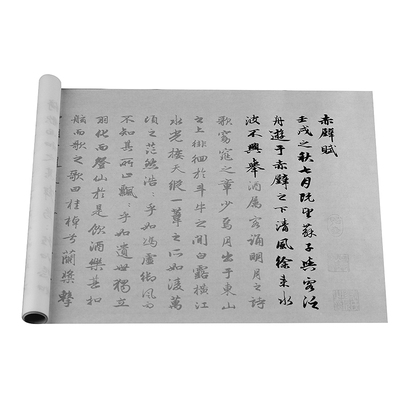 赤壁賦
壬戌之秋七月既望蘇子與客泛
舟遊于赤壁之下清風徐来水
波不興舉酒屬客誦明月之詩
歌窈窕之章少焉月出于東山
之上徘徊於斗牛之間白露橫江
水光接天縱一葦之所如淩萬
頃之茫然浩〻乎如馮虛御風而
不知其所止飄〻乎如遺世獨立
羽化而登仙於是飲酒樂甚扣
舷而歌之歌曰桂棹兮蘭槳擊